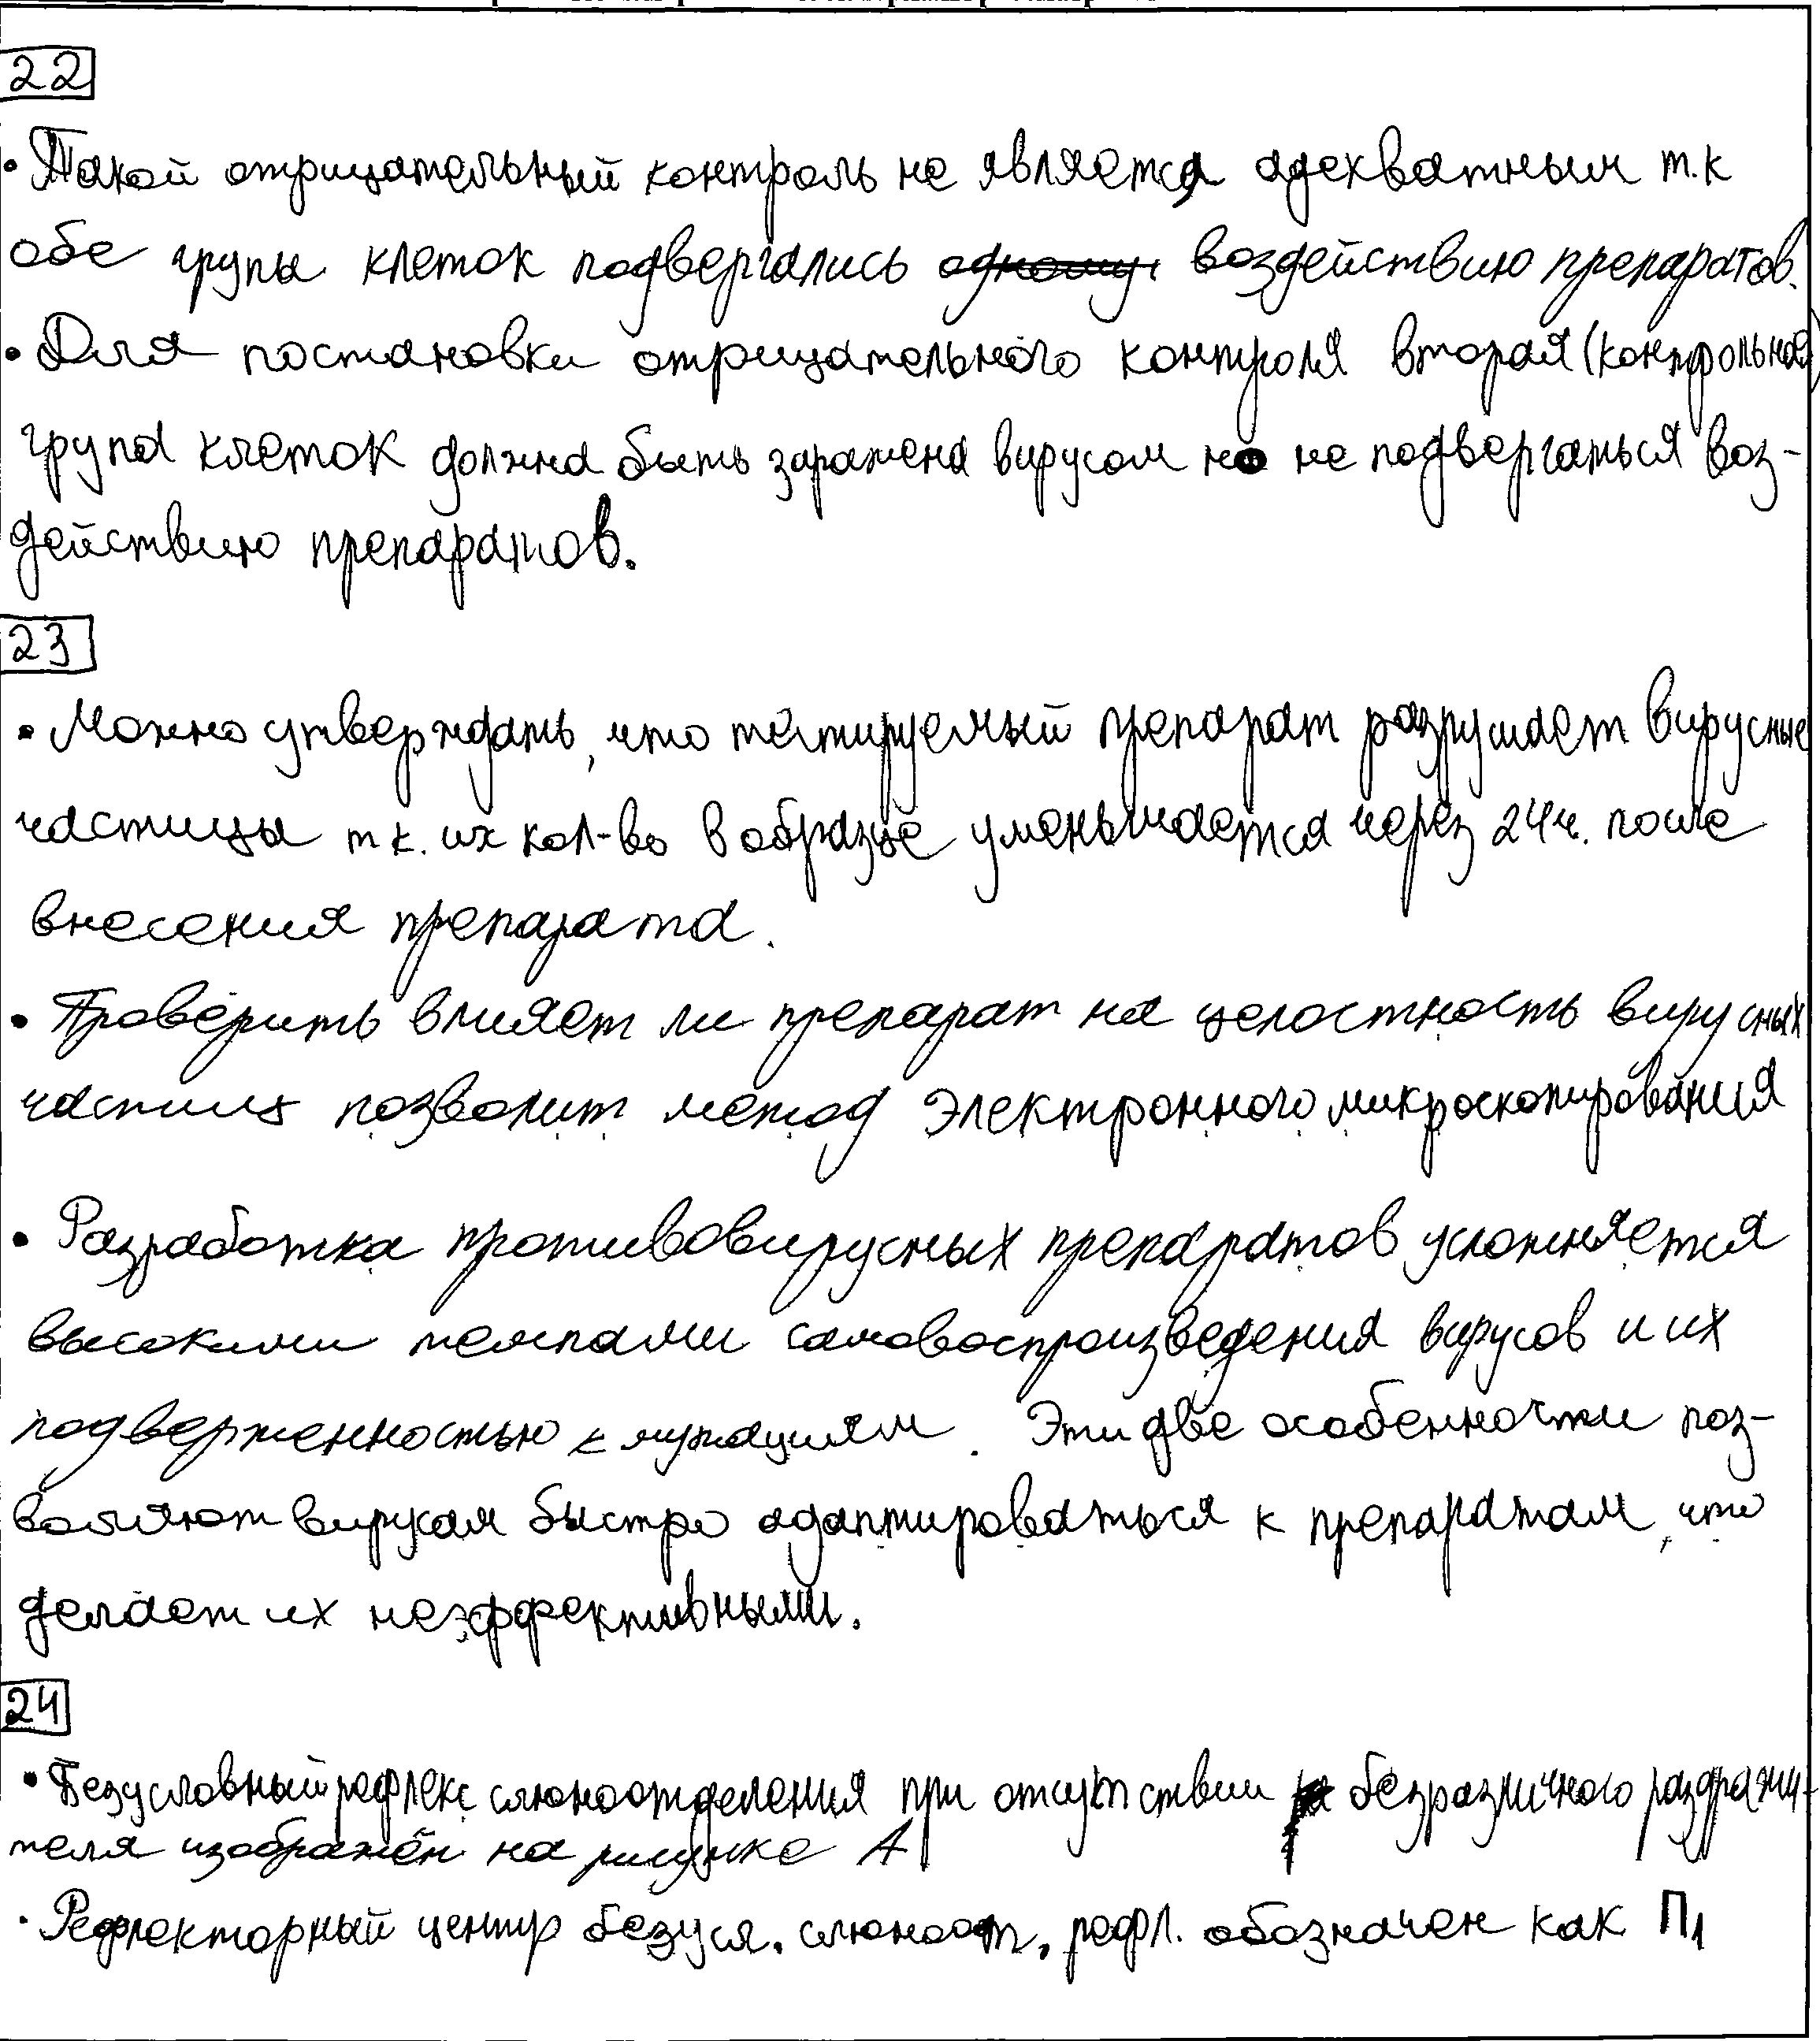 22
• Такой отрицательный контроль не является адекватным т.к
обе групы клеток подвергались одному воздействию препаратов.
• Для постановки отрицательного контроля вторая (контрольная)
група клеток должна быть заражена вирусом но не подвергаться воз-
действию препаратов.
23
• Можно утверждать, что тестируемый препарат разрушает вирусные
частицы т к. их кол-во в образце уменьшается через 24ч. после
внесения препарата.
• Проверить влияет ли препарат на целостность вирусных
частиц позволит метод электронного микроскопирования
• Разработка противовирусных препаратов усложняется
высокими темпами самовоспроизведения вирусов и их
подверженностью к мутациям. Эти две особенности поз-
воляют вирусам быстро адаптироваться к препаратам, что
делает их неэффективными.
24
• Безусловный рефлекс слюноотделения при отсутствии безразличного раздражи-
теля изображён на рисунке А
• Рефлекторный центр безусл. слюноот. рефл. обозначен как П1